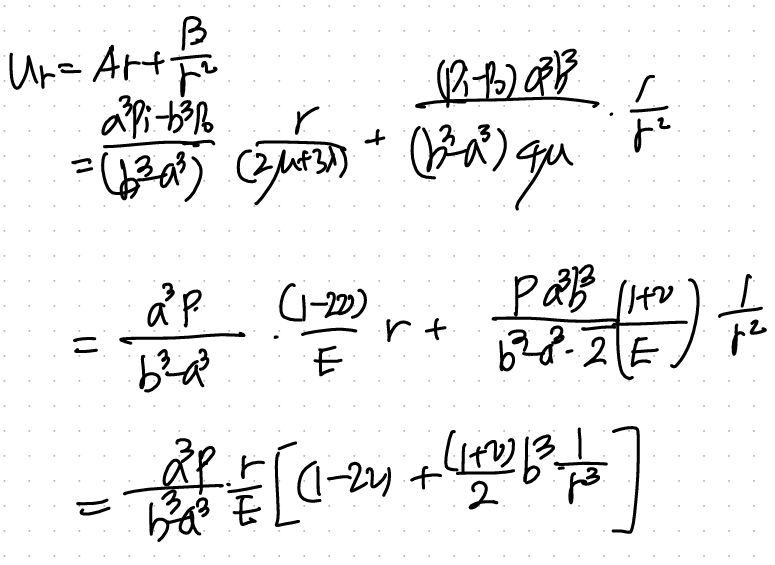 u_r = Ar + B/r²
= (a³Pi - b³Po)/(b³-a³) r/(2μ+3λ) + (Pi-Po)a³b³/((b³-a³)4μ) · 1/r²
= a³P/(b³-a³) · (1-2ν)/E r + Pa³b³/(b³-a³·2) ((1+ν)/E) 1/r²
= a³P/(b³-a³) · r/E [(1-2ν) + (1+ν)/2 b³ 1/r³]